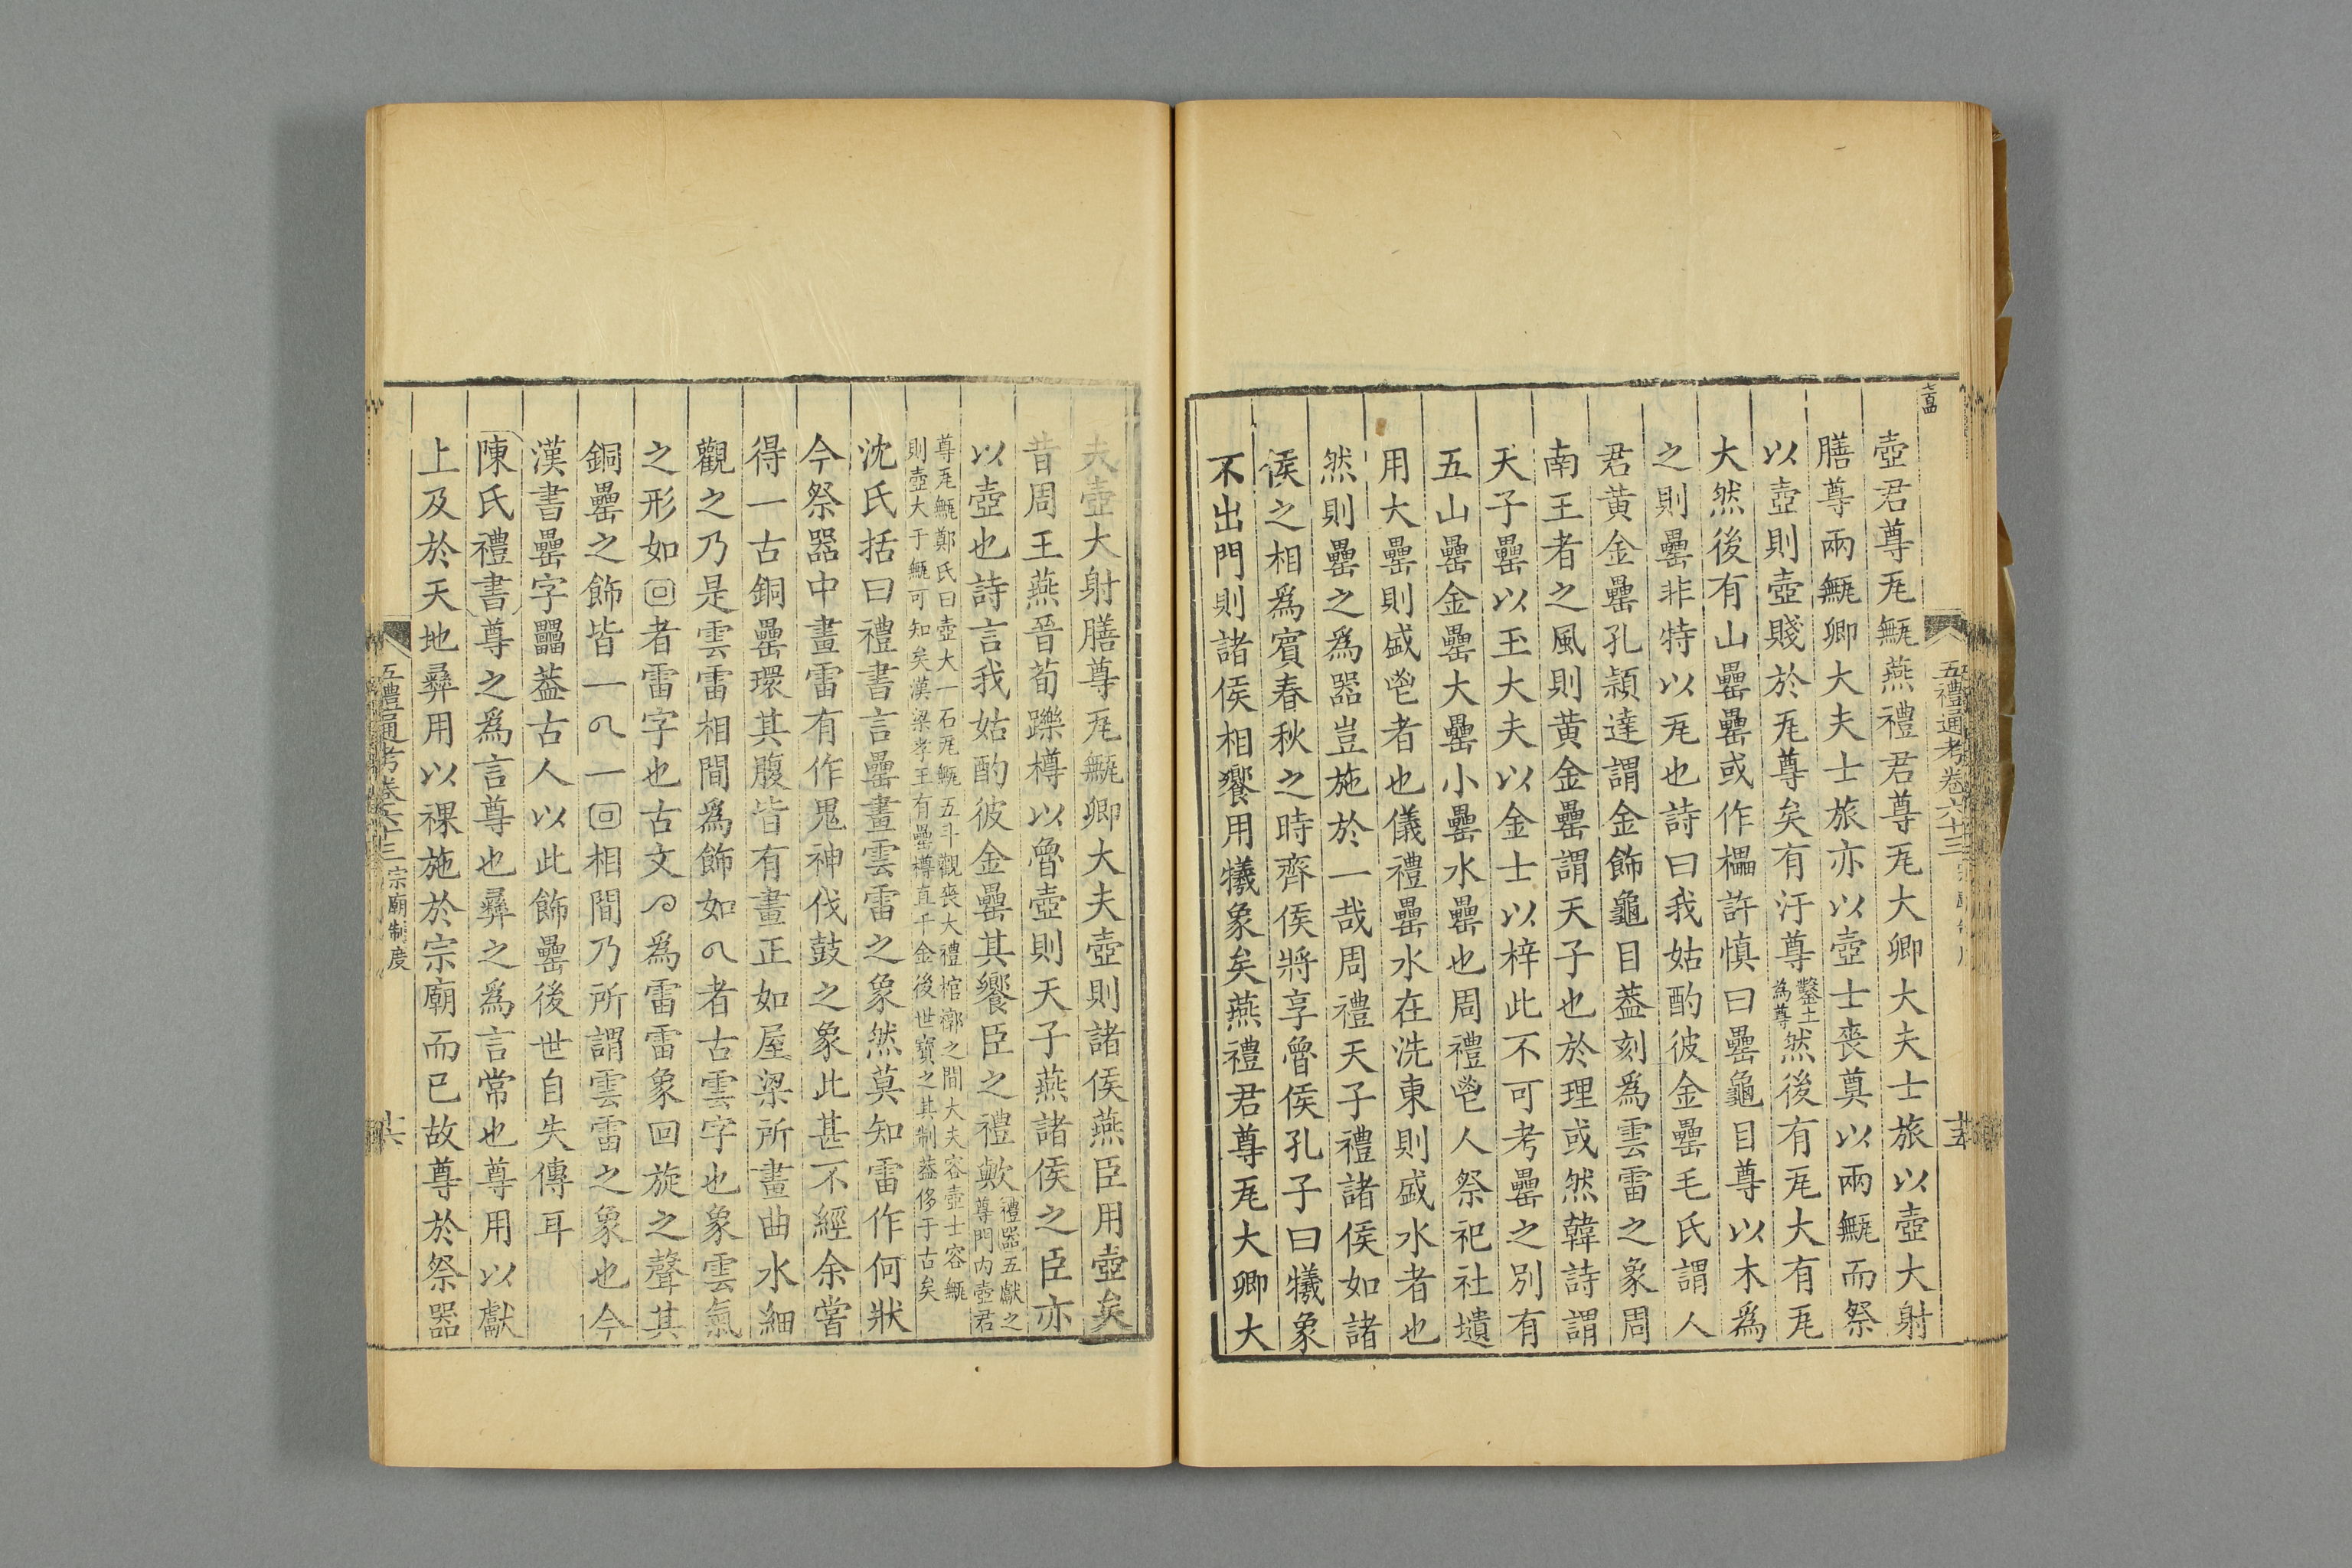 五禮通考卷六十三
十五
壺君尊瓦甒燕禮君尊瓦大卿大夫士旅以壺大射
膳尊兩甒卿大夫士旅亦以壺士喪奠以兩甒而祭
以壺則壺賤於瓦尊矣有汙尊鑿土為尊然後有瓦大有瓦
大然後有山罍罍或作櫑許慎曰罍龜目尊以木爲
之則罍非特以瓦也詩曰我姑酌彼金罍毛氏謂人
君黃金罍孔頴達謂金飾龜目葢刻爲雲雷之象周
南王者之風則黃金罍謂天子也於理或然韓詩謂
天子罍以玉大夫以金士以梓此不可考罍之別有
五山罍金罍大罍小罍水罍也周禮鬯人祭祀社壝
用大罍則盛鬯者也儀禮罍水在洗東則盛水者也
然則罍之爲器豈施於一哉周禮天子禮諸侯如諸
侯之相爲賓春秋之時齊侯將享魯侯孔子曰犧象
不出門則諸侯相饗用犧象矣燕禮君尊瓦大卿大
夫壺大射膳尊瓦甒卿大夫壺則諸侯燕臣用壺矣
昔周王燕晉荀躒樽以魯壺則天子燕諸侯之臣亦
以壺也詩言我姑酌彼金罍其饗臣之禮歟禮器五獻之尊門内壺君
尊瓦甒鄭氏曰壺大一石瓦甒五斗觀喪大禮棺槨之間大夫容壺士容甒
則壺大于甒可知矣漢梁孝王有罍樽直千金後世寶之其制葢侈于古矣
沈氏括曰禮書言罍畫雲雷之象然莫知雷作何狀
今祭器中畫雷有作鬼神伐鼓之象此甚不經余嘗
得一古銅罍環其腹皆有畫正如屋梁所畫曲水細
觀之乃是雲雷相間爲飾如者古雲字也象雲氣
之形如者雷字也古文爲雷雷象回旋之聲其
銅罍之飾皆一一相間乃所謂雲雷之象也今
漢書罍字䨻葢古人以此飾罍後世自失傳耳
陳氏禮書尊之爲言尊也彞之爲言常也尊用以獻
上及於天地彞用以祼施於宗廟而已故尊於祭器
五禮通考卷六十三 宗廟制度
十六